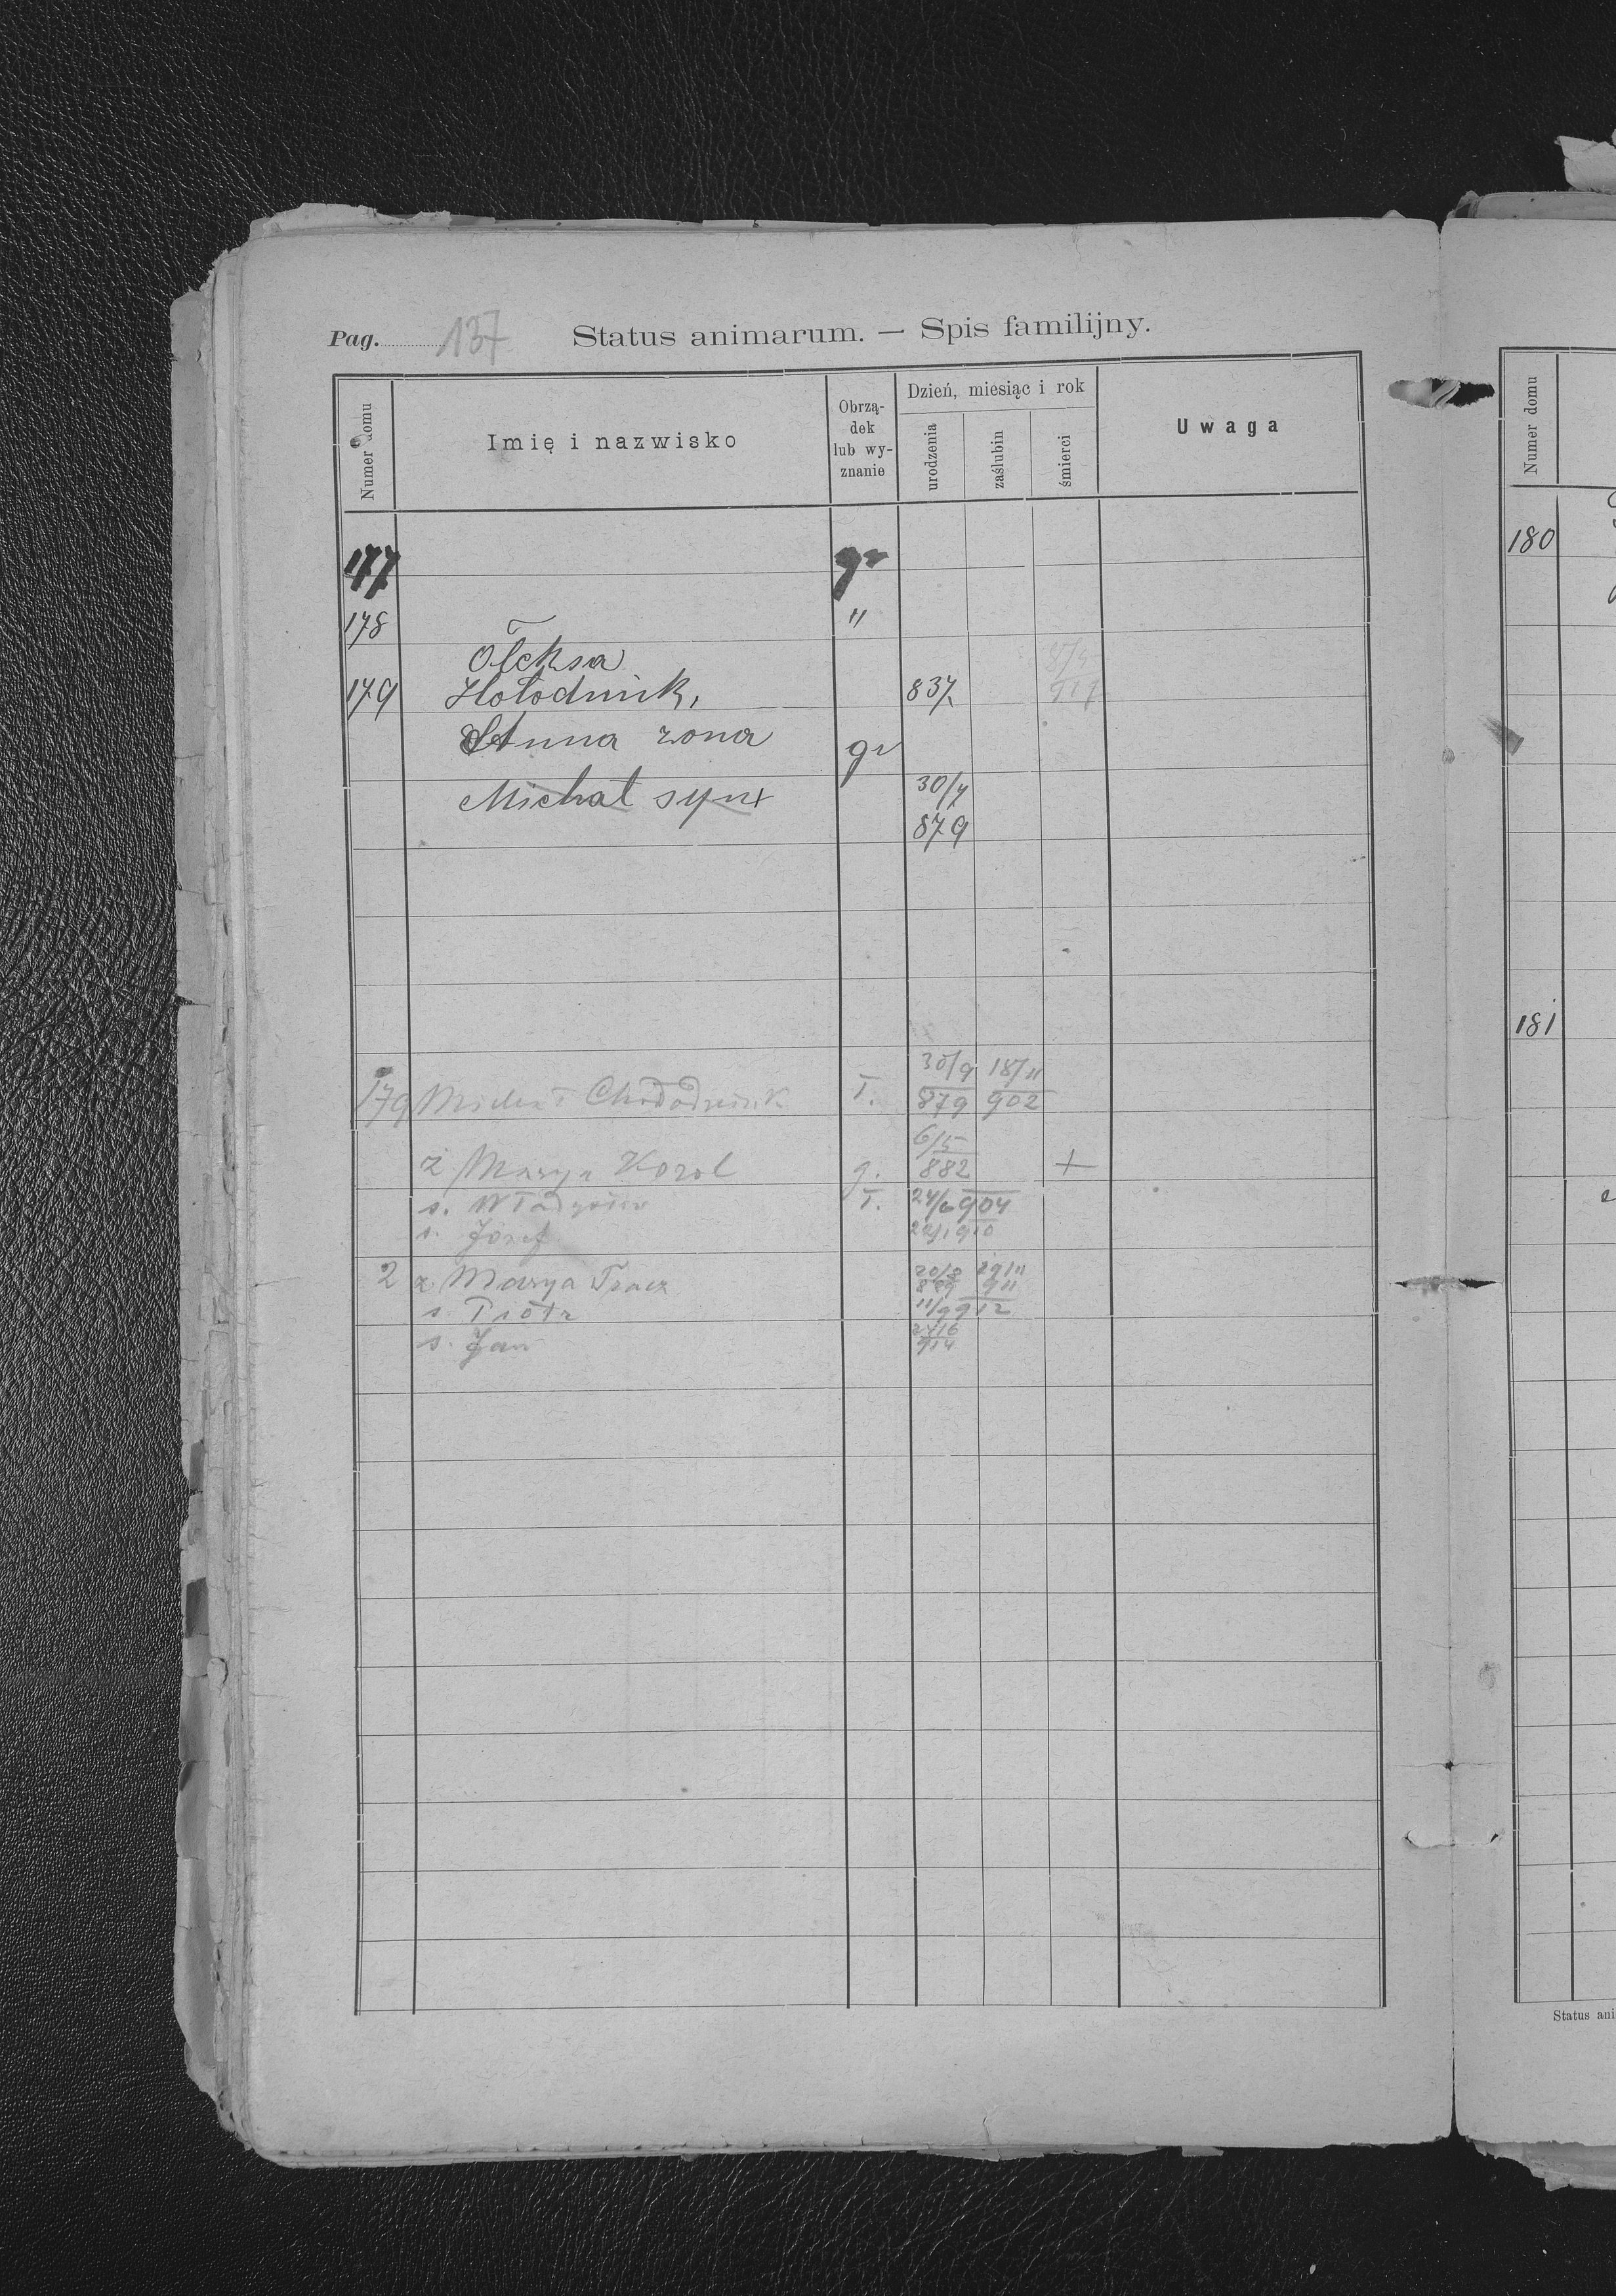 Pag. 137 Status animarum. — Spis familijny.
Numer domu
Imię i nazwisko
Obrzą-
dek
lub wy-
znanie
Dzień, miesiąc i rok
urodzenia
zaślubin
śmierci
Uwaga
177 gr
178 "
Ołeksa
179 Hołodnik, 837
Anna zona gr
Michał syn + 30/7
879
30/9 18/11
179 Michał Chłodnik ł. 879 902
6/5
ż Marya Korol g. 882 +
s. Władysław ł. 24/6 904
s. Józef 22/1 910
2 ż. Marya Tracz 20/8 29/11
889 911
s. Piotr 11/9 912
s. Jan 27/6
914
Numer domu
180
181
Status ani